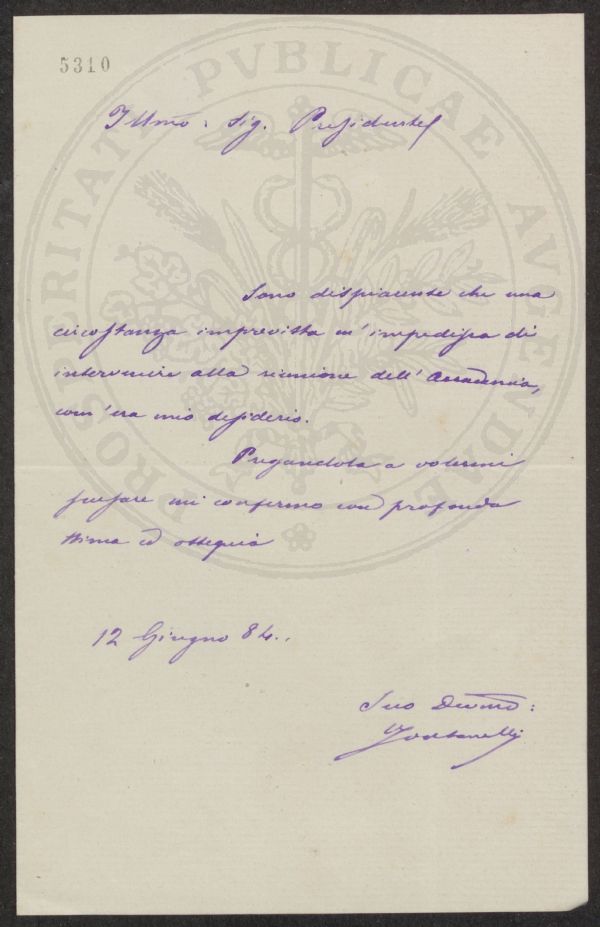 5310
Illmo: Sig. Presidente
Sono dispiacente che una
circostanza imprevista m'impedisca di
intervenire alla riunione dell'Accademia,
com'era mio desiderio.
Pregandola a volermi
scusare mi confermo con profonda
stima ed ossequio
12 Giugno 84..
Suo Devmo:
Fontanelli
PROSPERITATI PVBLICAE AVGENDAE